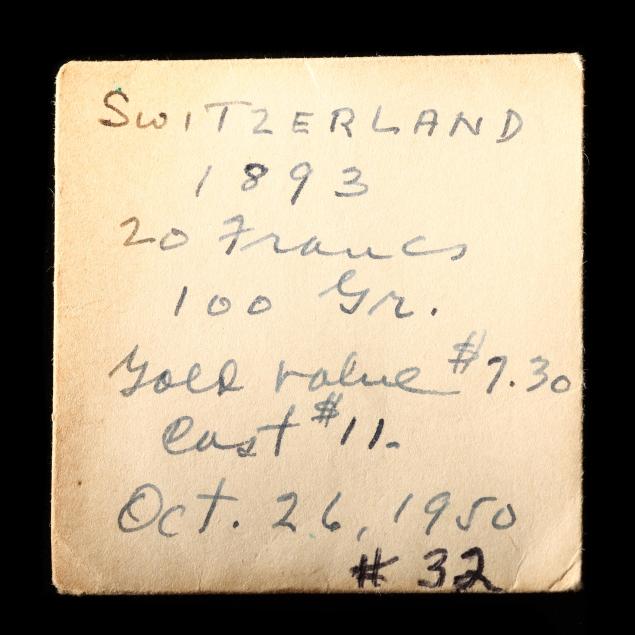 SWITZERLAND
1893
20 Francs
100 Gr.
Gold value $7.30
Cost $11.
Oct. 26, 1950
# 32